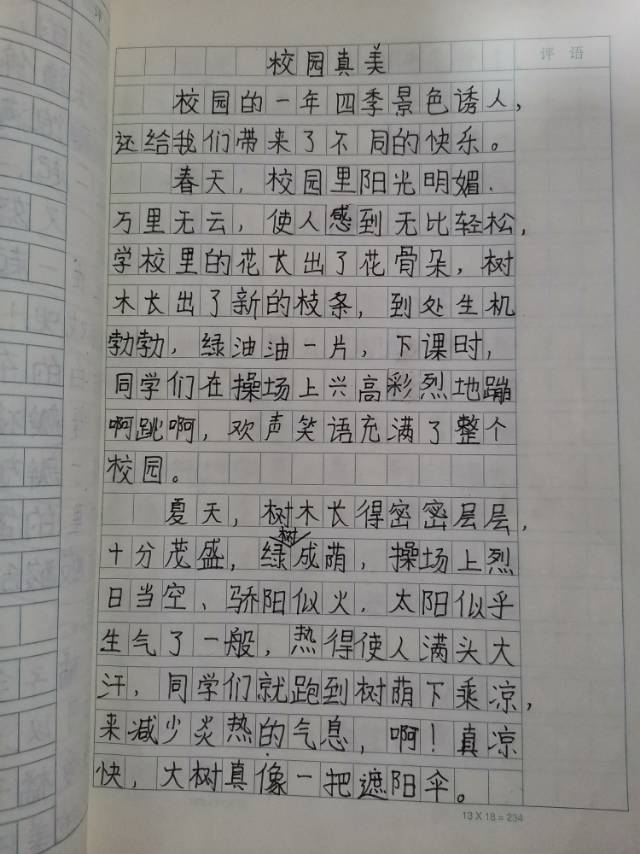 评语
校园真美
校园的一年四季景色诱人,
还给我们带来了不同的快乐。
春天,校园里阳光明媚.
万里无云,使人感到无比轻松,
学校里的花长出了花骨朵,树
木长出了新的枝条,到处生机
勃勃,绿油油一片,下课时,
同学们在操场上兴高彩烈地蹦
啊跳啊,欢声笑语充满了整个
校园。
夏天,树木长得密密层层,
十分茂盛,绿树成荫,操场上烈
日当空、骄阳似火.太阳似乎
生气了一般,热得使人满头大
汗,同学们就跑到树荫下乘凉,
来减少炎热的气息,啊!真凉
快,大树真像一把遮阳伞。
13×18=234